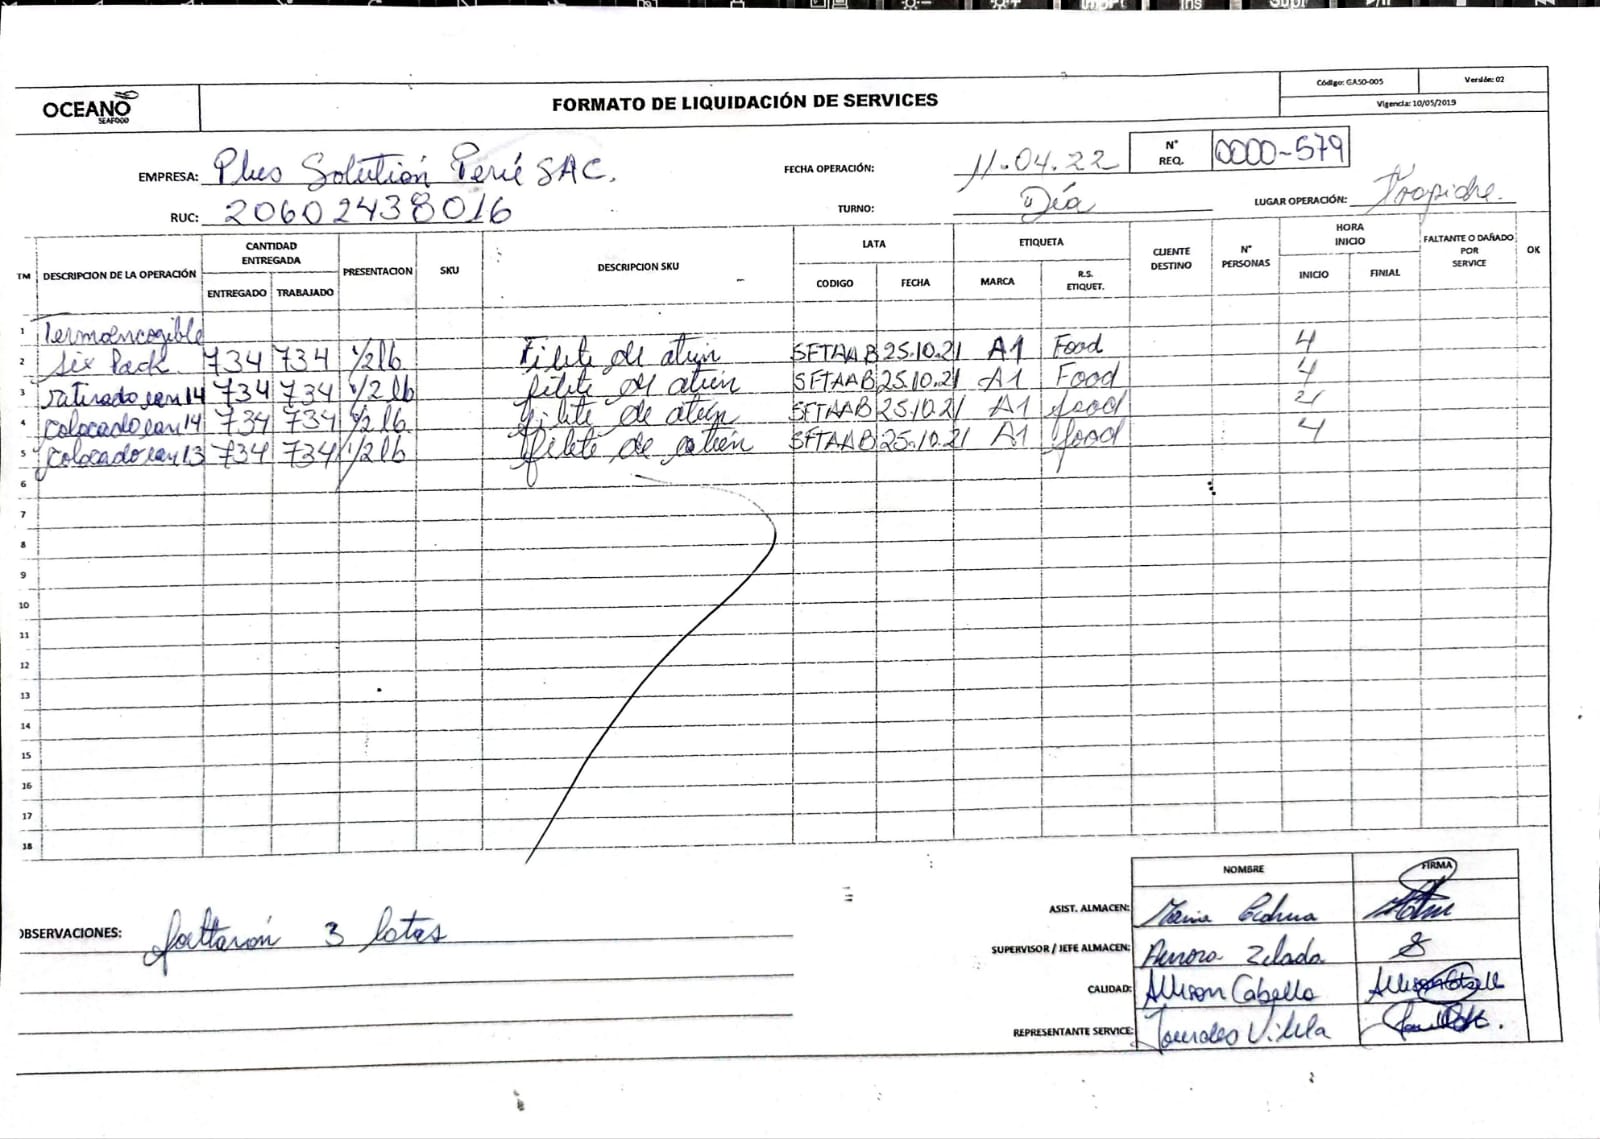 OCEANO
SEAFOOD
FORMATO DE LIQUIDACIÓN DE SERVICES
Código: GASO-005
Versión: 02
Vigencia: 10/05/2019
EMPRESA: Plus Solutión Perú SAC.
FECHA OPERACIÓN: 11.04.22
N° REQ. 0000-579
RUC: 20602438016
TURNO: Día
LUGAR OPERACIÓN: Trapiche.
TM DESCRIPCION DE LA OPERACIÓN CANTIDAD ENTREGADA PRESENTACION SKU DESCRIPCION SKU LATA ETIQUETA CLIENTE DESTINO N° PERSONAS HORA INICIO FALTANTE O DAÑADO POR SERVICE OK
ENTREGADO TRABAJADO CODIGO FECHA MARCA R.S. ETIQUET. INICIO FINIAL
1 Termoencogible
2 Six Pack 734 734 1/2lb Filete de atún SFTAAB 25.10.21 A1 Food 4
3 retirado can 14 734 734 1/2 lb filete de atún SFTAAB 25.10.21 A1 Food 4
4 colocado can 14 734 734 1/2 lb. filete de atún SFTAAB 25.10.21 A1 food 2
5 colocado can 13 734 734 1/2 lb filete de atún SFTAAB 25.10.21 A1 food 4
6
7
8
9
10
11
12
13
14
15
16
17
18
NOMBRE FIRMA
OBSERVACIONES: faltarón 3 latas
ASIST. ALMACEN:
SUPERVISOR / JEFE ALMACEN: Aurora Zelada
CALIDAD: Allison Cabello
REPRESENTANTE SERVICE: Lourdes Vilela